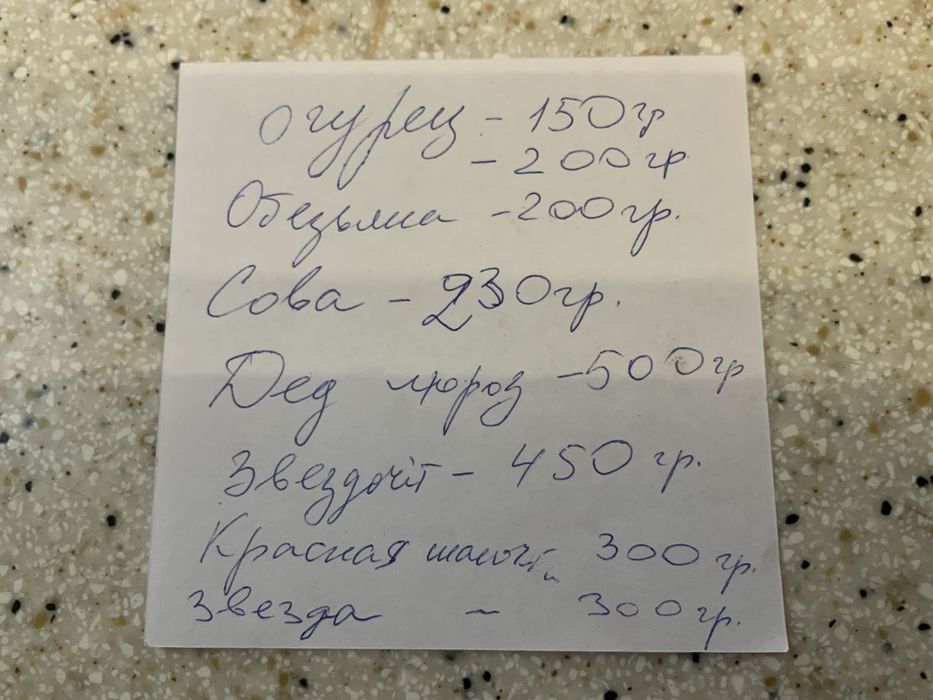 Огурец - 150гр
- 200гр
Обезьяна - 200гр.
Сова - 230гр.
Дед мороз - 500гр
Звездочёт - 450гр.
Красная шапочка 300гр.
Звезда - 300гр.